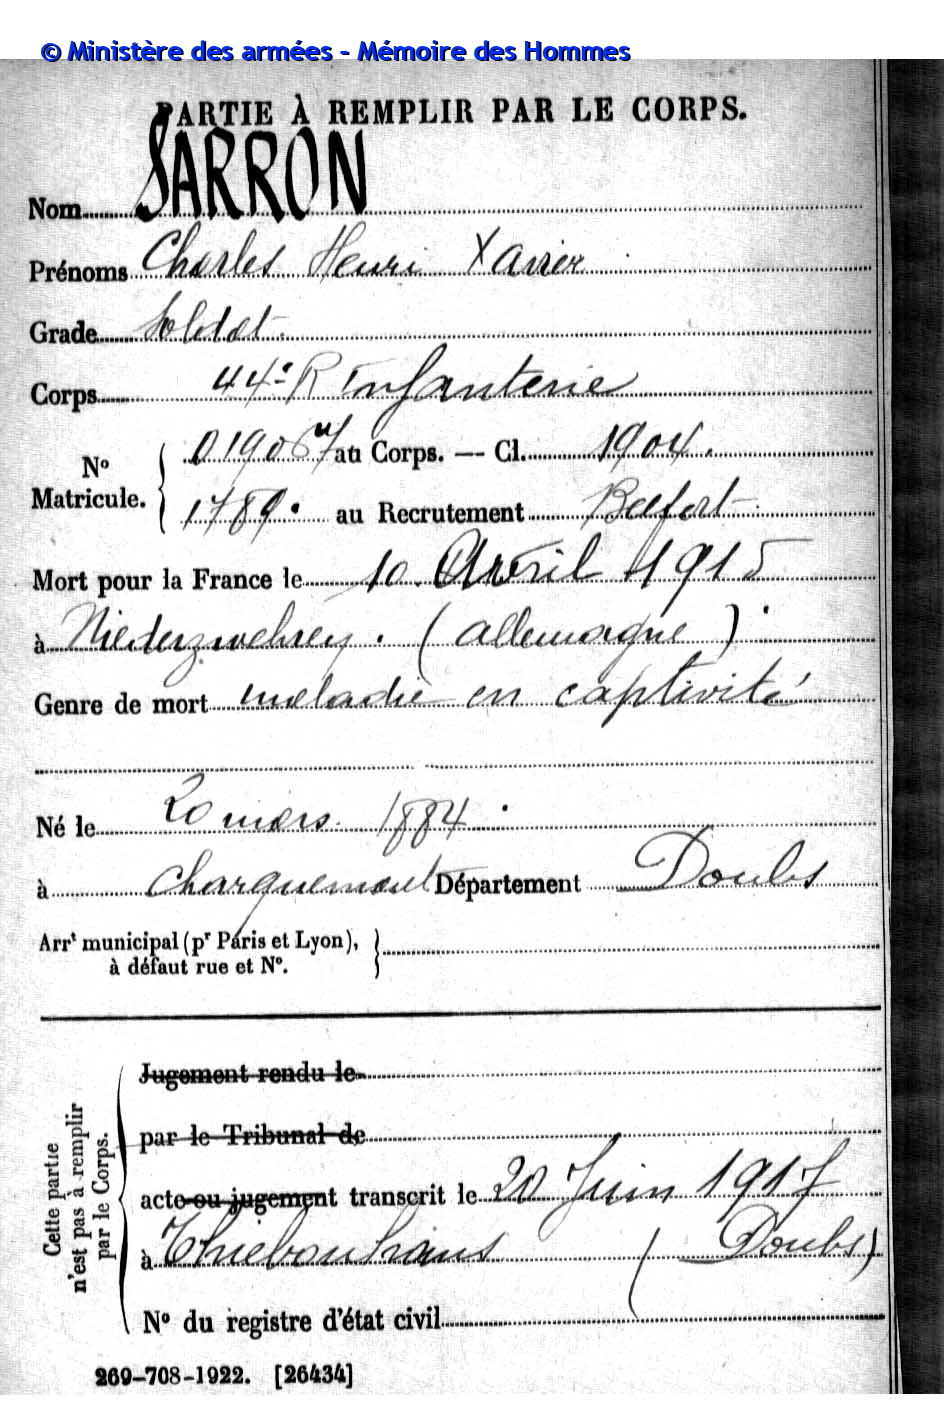 © Ministère des armées - Mémoire des Hommes
PARTIE À REMPLIR PAR LE CORPS.
Nom SARRON
Prénoms Charles Henri Xavier
Grade Soldat
Corps 44e R Infanterie
N° Matricule. { 019067 au Corps. — Cl. 1904.
1789. au Recrutement Belfort
Mort pour la France le 10 Avril 1915
à Niederzwehren. (Allemagne).
Genre de mort maladie en captivité
Né le 20 mars 1884.
à Charquemont Département Doubs
Arrt municipal (pr Paris et Lyon),
à défaut rue et N°.
Cette partie n'est pas à remplir par le Corps.
Jugement rendu le
par le Tribunal de
acte ou jugement transcrit le 20 Juin 1917
à Thiébouhans (Doubs)
N° du registre d'état civil
269-708-1922. [26434]